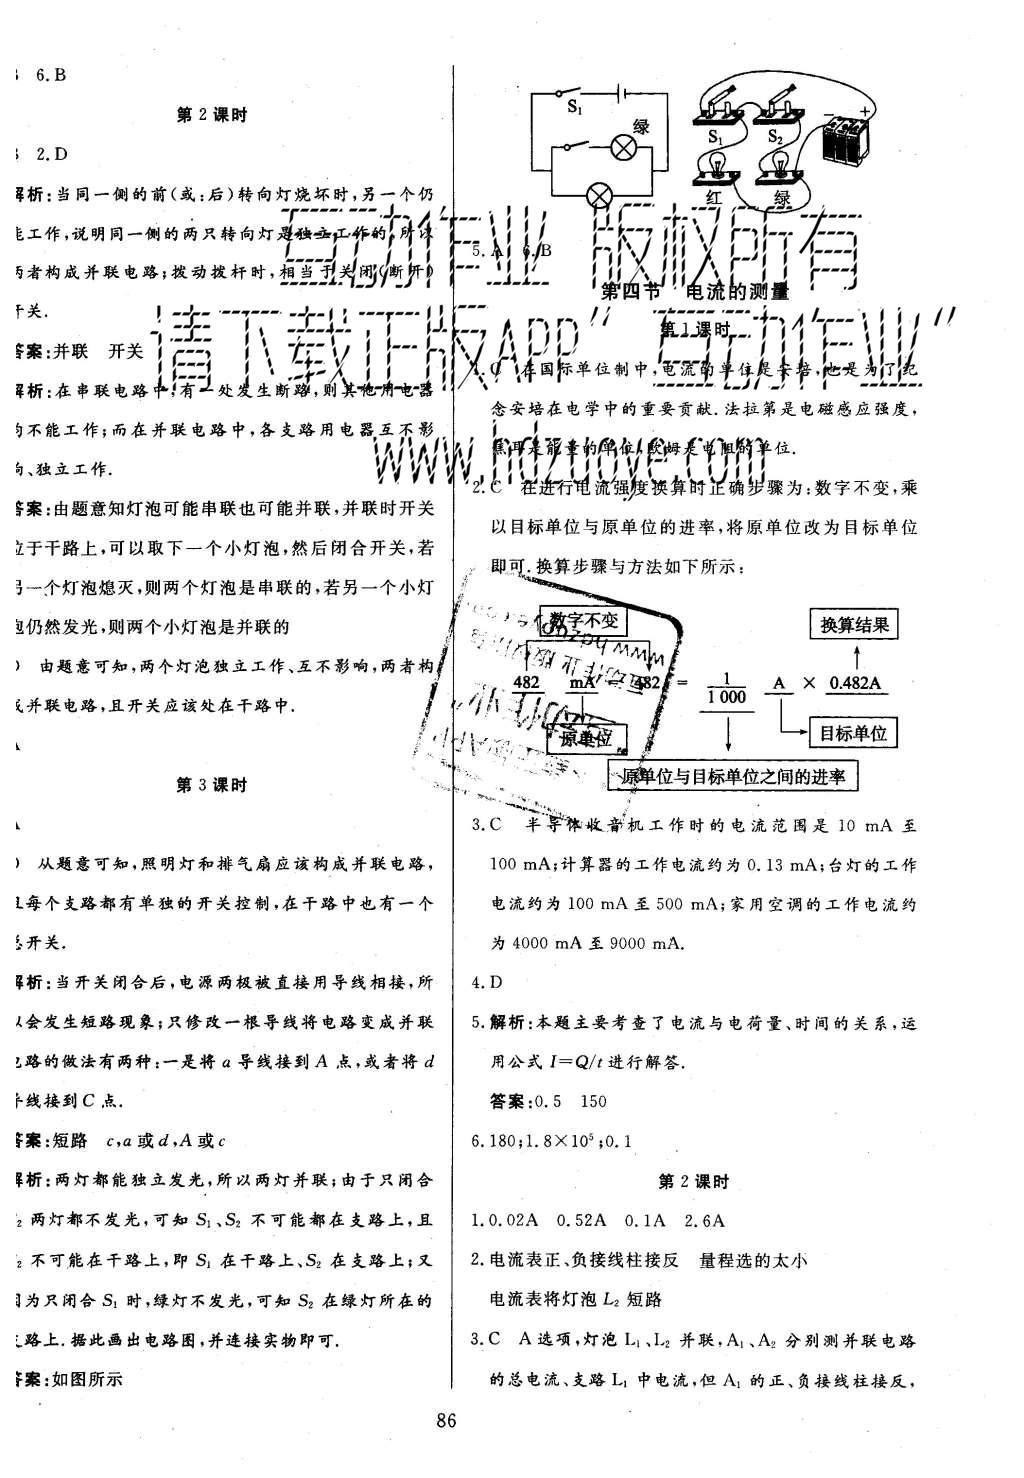 6.B
第2课时
2.D
解析:当同一侧的前(或:后)转向灯烧坏时,另一个仍
能工作,说明同一侧的两只转向灯是独立工作的,所以
两者构成并联电路;拨动拨杆时,相当于关闭(断开)
开关.
答案:并联 开关
解析:在串联电路中,有一处发生断路,则其他用电器
均不能工作;而在并联电路中,各支路用电器互不影
响、独立工作.
答案:由题意知灯泡可能串联也可能并联,并联时开关
位于干路上,可以取下一个小灯泡,然后闭合开关,若
另一个灯泡熄灭,则两个灯泡是串联的,若另一个小灯
泡仍然发光,则两个小灯泡是并联的
由题意可知,两个灯泡独立工作、互不影响,两者构
成并联电路,且开关应该处在干路中.
第3课时
从题意可知,照明灯和排气扇应该构成并联电路,
且每个支路都有单独的开关控制,在干路中也有一个
总开关.
解析:当开关闭合后,电源两极被直接用导线相接,所
以会发生短路现象;只修改一根导线将电路变成并联
电路的做法有两种:一是将a导线接到A点,或者将d
导线接到C点.
答案:短路 c,a或d,A或c
解析:两灯都能独立发光,所以两灯并联;由于只闭合
S₂两灯都不发光,可知S₁、S₂不可能都在支路上,且
S₂不可能在干路上,即S₁在干路上、S₂在支路上;又
因为只闭合S₁时,绿灯不发光,可知S₂在绿灯所在的
支路上.据此画出电路图,并连接实物即可.
答案:如图所示
S₁
绿
S₁ S₂
− +
红 绿
5.A 6.B
第四节 电流的测量
第1课时
1.C 在国际单位制中,电流的单位是安培,也是为了纪
念安培在电学中的重要贡献.法拉第是电磁感应强度,
焦耳是能量的单位,欧姆是电阻的单位.
2.C 在进行电流强度换算时正确步骤为:数字不变,乘
以目标单位与原单位的进率,将原单位改为目标单位
即可.换算步骤与方法如下所示:
数字不变 换算结果
482 mA 482 = 1/1000 A × 0.482A
原单位 目标单位
原单位与目标单位之间的进率
3.C 半导体收音机工作时的电流范围是10 mA至
100 mA;计算器的工作电流约为0.13 mA;台灯的工作
电流约为100 mA至500 mA;家用空调的工作电流约
为4000 mA至9000 mA.
4.D
5.解析:本题主要考查了电流与电荷量、时间的关系,运
用公式I=Q/t进行解答.
答案:0.5 150
6.180;1.8×10⁵;0.1
第2课时
1.0.02A 0.52A 0.1A 2.6A
2.电流表正、负接线柱接反 量程选的太小
电流表将灯泡L₂短路
3.C A选项,灯泡L₁、L₂并联,A₁、A₂分别测并联电路
的总电流、支路L₁中电流,但A₁的正、负接线柱接反,
86
互动作业 版权所有
请下载正版APP“互动作业”
www.hdzuoye.com